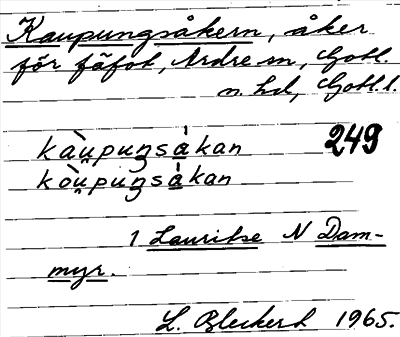 Kaupungsåkern, åker
för fäfot, Ardre sn, Gotl.
n. hd, Gotl. l.
kàu̯puŋsákan 249
kòu̯puŋsákan
1 Lauritse N Dam-
myr.
L. Bleckert 1965.